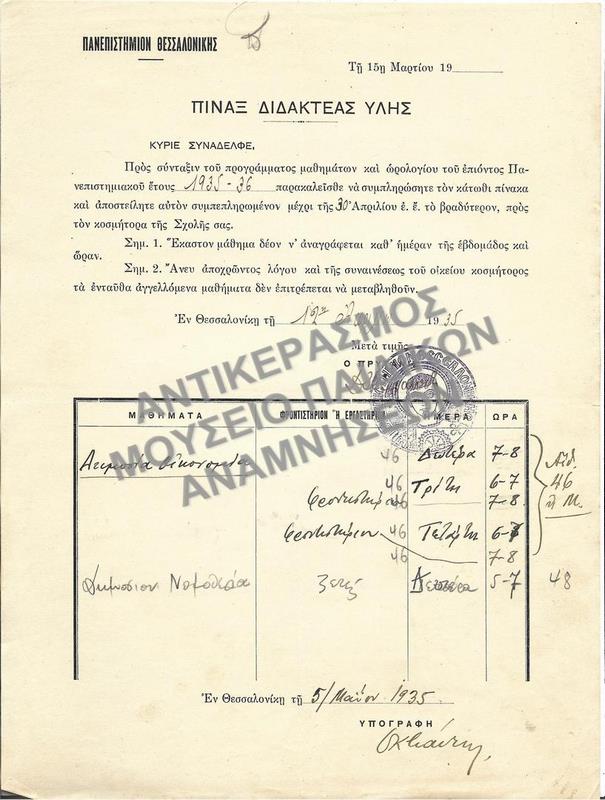 ΠΑΝΕΠΙΣΤΗΜΙΟΝ ΘΕΣΣΑΛΟΝΙΚΗΣ
Τῇ 15ῃ Μαρτίου 19
ΠΙΝΑΞ ΔΙΔΑΚΤΕΑΣ ΥΛΗΣ
ΚΥΡΙΕ ΣΥΝΑΔΕΛΦΕ,
Πρὸς σύνταξιν τοῦ προγράμματος μαθημάτων καὶ ὡρολογίου τοῦ ἐπιόντος Πα-
νεπιστημιακοῦ ἔτους 1935-36 παρακαλεῖσθε νὰ συμπληρώσητε τὸν κάτωθι πίνακα
καὶ ἀποστείλητε αὐτὸν συμπεπληρωμένον μέχρι τῆς 30 Ἀπριλίου ἐ. ἔ. τὸ βραδύτερον, πρὸς
τὸν κοσμήτορα τῆς Σχολῆς σας.
Σημ. 1. Ἕκαστον μάθημα δέον ν' ἀναγράφεται καθ' ἡμέραν τῆς ἑβδομάδος καὶ
ὥραν.
Σημ. 2. Ἄνευ ἀποχρῶντος λόγου καὶ τῆς συναινέσεως τοῦ οἰκείου κοσμήτορος
τὰ ἐνταῦθα ἀγγελλόμενα μαθήματα δὲν ἐπιτρέπεται νὰ μεταβληθοῦν.
Ἐν Θεσσαλονίκῃ τῇ 12ῃ 1935
Μετὰ τιμῆς
Ο ΠΡΥ
ΑΝΤΙΚΕΡΑΣΜΟΣ
ΜΟΥΣΕΙΟ ΠΑΙΔΙΚΩΝ
ΑΝΑΜΝΗΣΕΩΝ
ΜΑΘΗΜΑΤΑ ΦΡΟΝΤΙΣΤΗΡΙΟΝ Ἢ ΕΡΓΑΣΤΗΡΙΟΝ ΗΜΕΡΑ ΩΡΑ
οἰκονομία 46 Δευτέρα 7-8
46 Τρίτη 6-7
φροντιστήριον 46 7-8
φροντιστήριον 46 Τετάρτη 6-7
46 7-8
46
Δημόσιον Δευτέρα 5-7 48
Ἐν Θεσσαλονίκῃ τῇ 5/Μαΐου 1935
ΥΠΟΓΡΑΦΗ